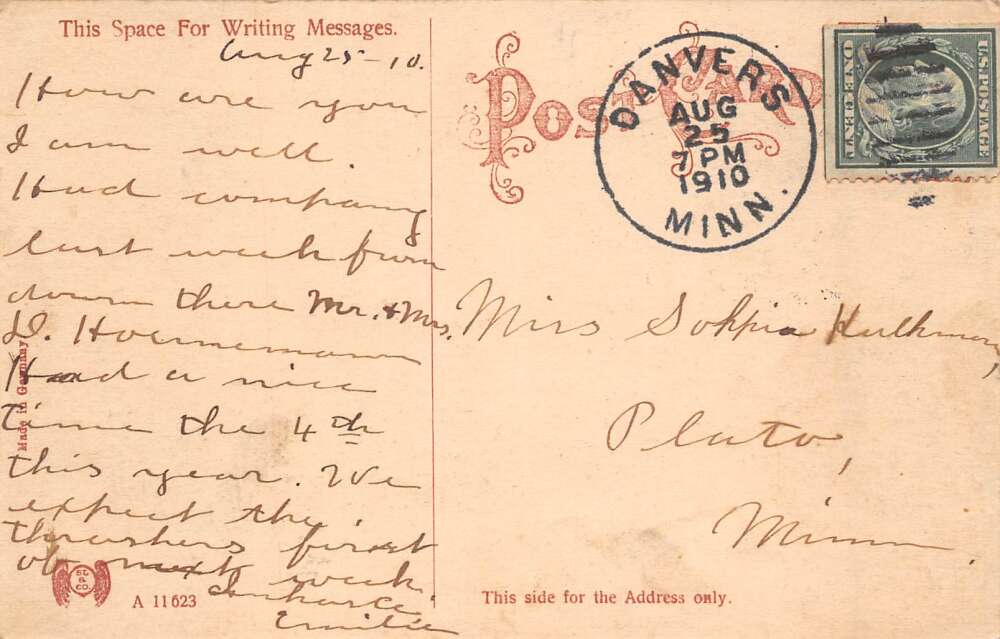 This Space For Writing Messages.
Aug 25-10.
How are you
I am well.
Had company
last week from
down there Mr. & Mrs.
D. Hoernemann
Had a nice
time the 4th
this year. We
expect the
thrashers first
of next week.
In haste
Emilie
Made in Germany
SL
&
CO.
A 11623
POST CARD
DANVERS
AUG
25
7 PM
1910
MINN.
U.S. POSTAGE
ONE CENT
Miss Sophia
Plato,
Minn
This side for the Address only.